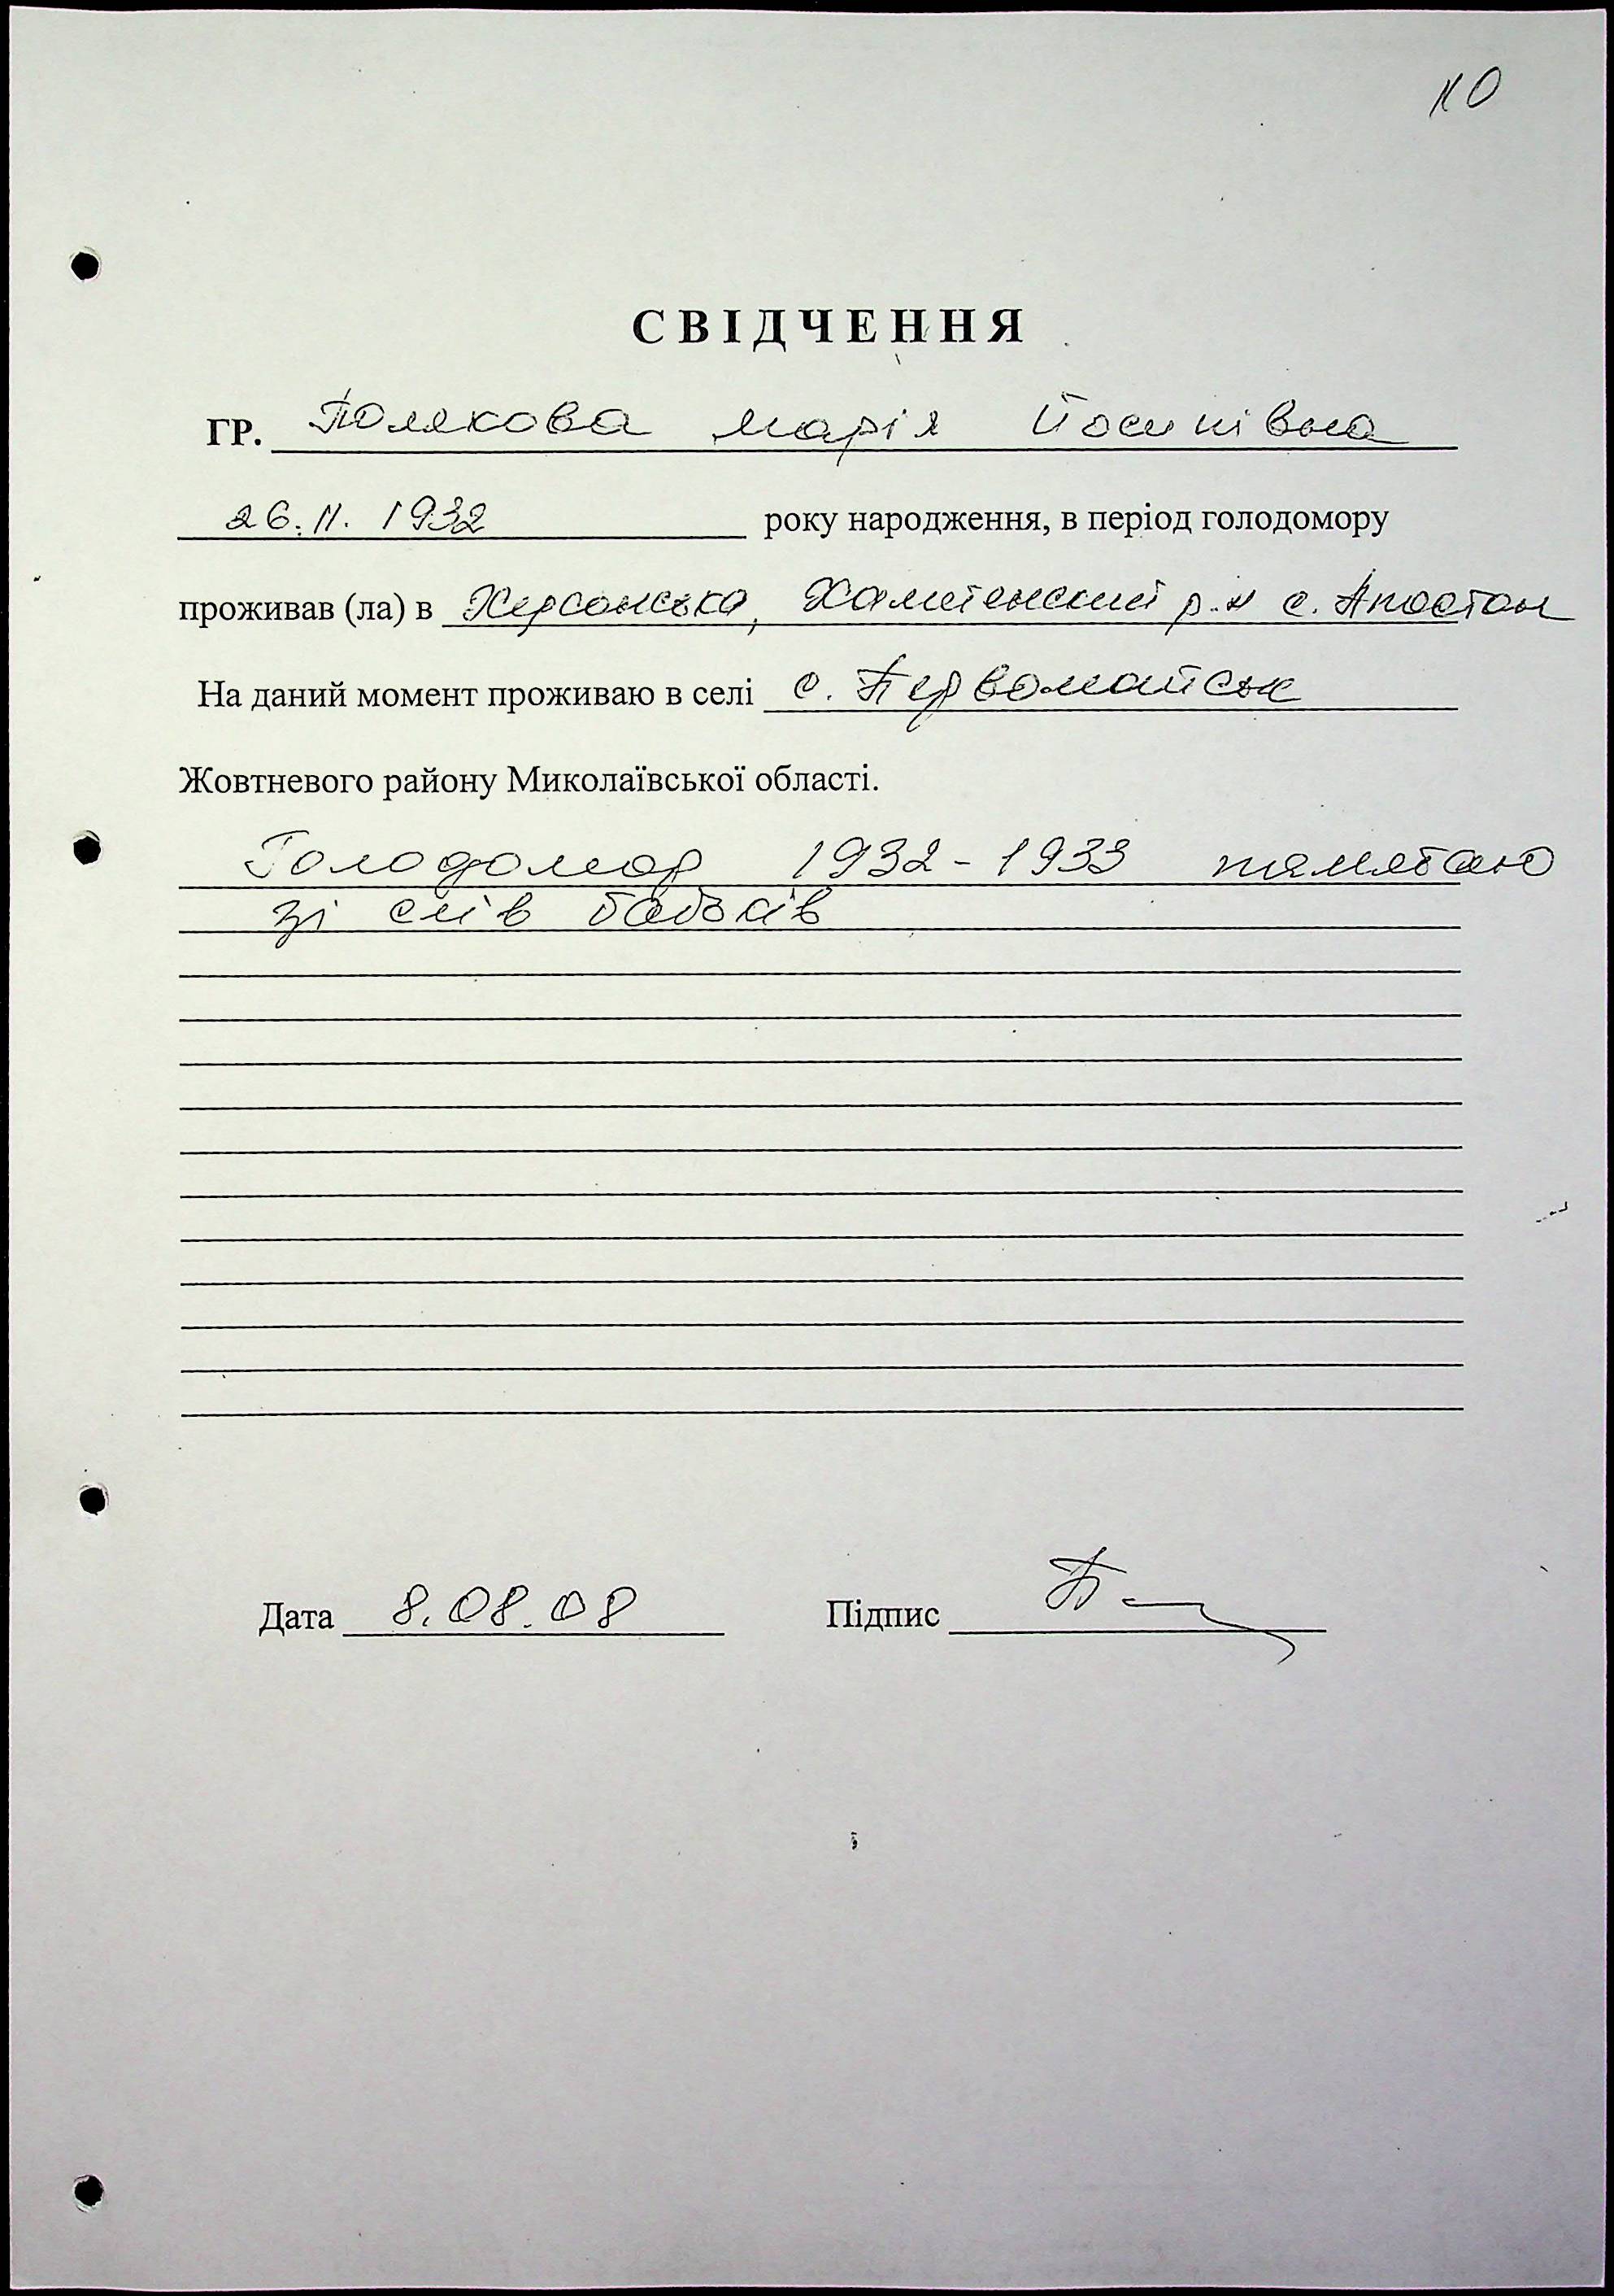 110
СВІДЧЕННЯ
ГР. Полякова Марія Йосипівна
26.11.1932 року народження, в період голодомору
проживав (ла) в Херсонська, р.н с. Апостол
На даний момент проживаю в селі с. Первомайськ
Жовтневого району Миколаївської області.
Голодомор 1932-1933 памятаю
зі слів батьків
Дата 8.08.08 Підпис